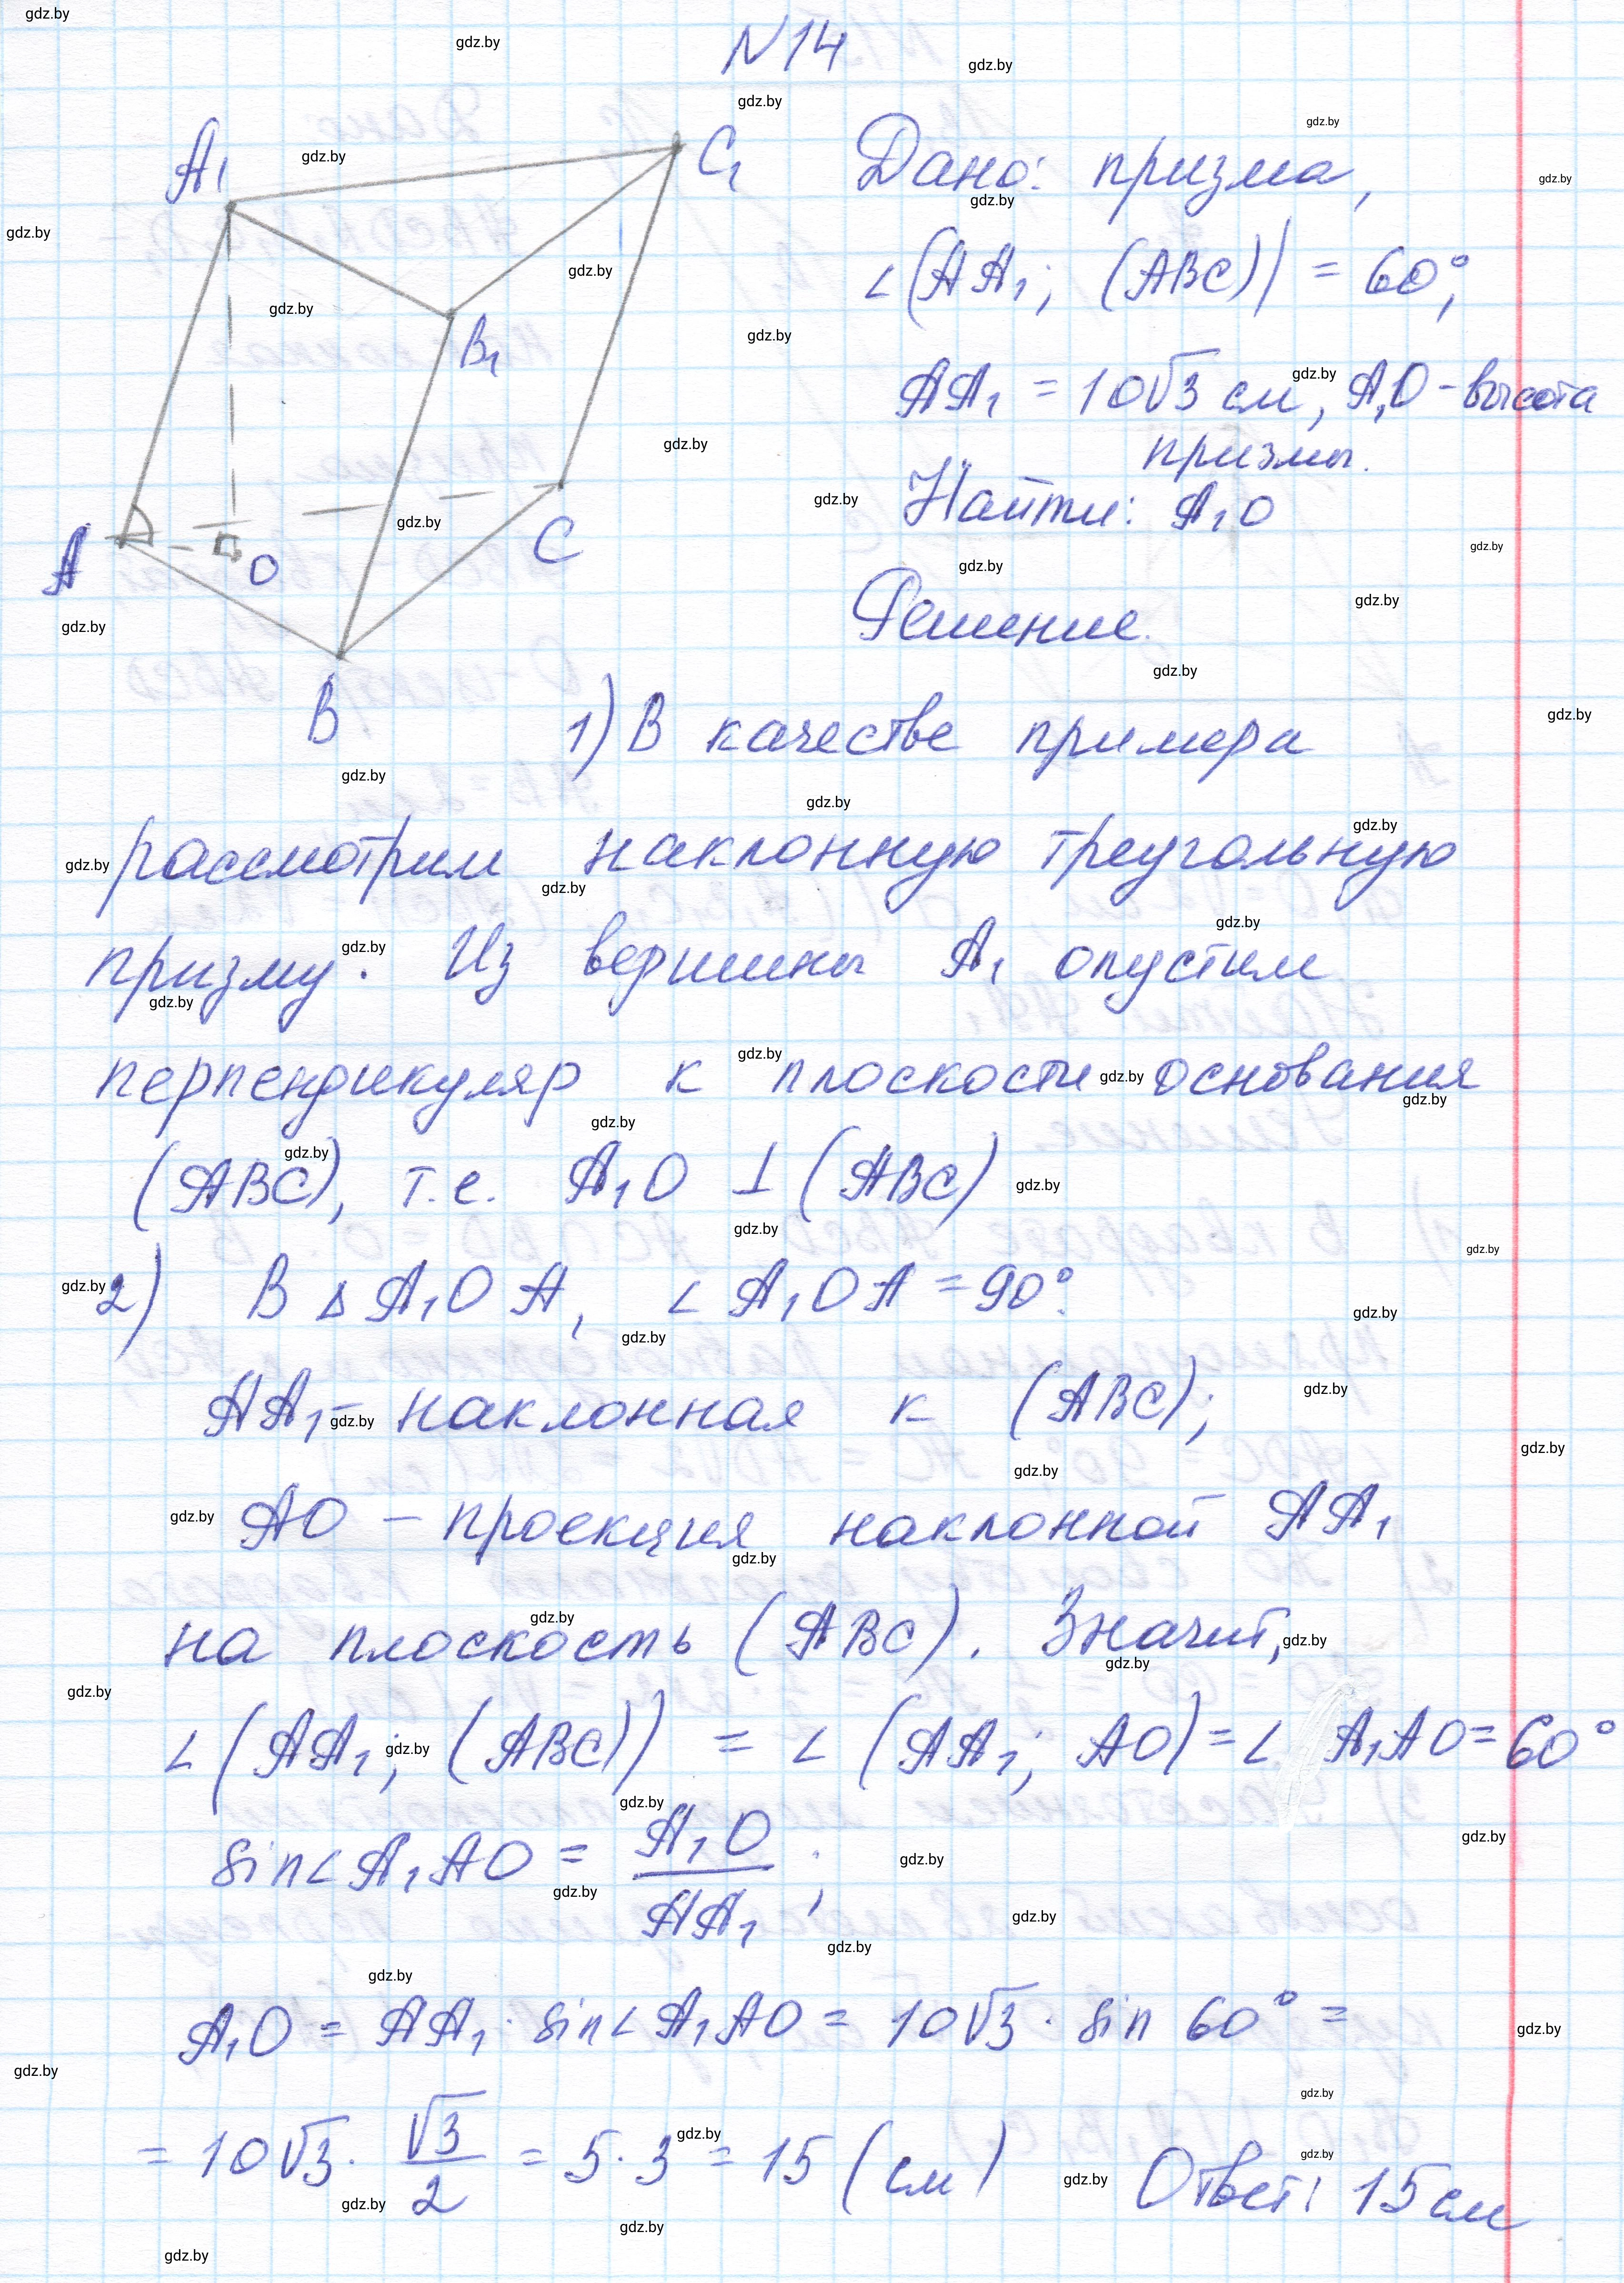 N14
A₁
C₁
B₁
A
O
C
B
Дано: призма,
∠(AA₁; (ABC)) = 60°,
AA₁ = 10√3 см, A₁O - высота
призмы.
Найти: A₁O
Решение.
1) В качестве примера
рассмотрим наклонную треугольную
призму. Из вершины A₁ опустим
перпендикуляр к плоскости основания
(ABC), т.е. A₁O ⊥ (ABC)
2) В ΔA₁OA, ∠A₁OA = 90°.
AA₁ - наклонная к (ABC);
AO - проекция наклонной AA₁
на плоскость (ABC). Значит,
∠(AA₁; (ABC)) = ∠(AA₁; AO) = ∠A₁AO = 60°
sin∠A₁AO = A₁O / AA₁;
A₁O = AA₁ · sin∠A₁AO = 10√3 · sin 60° =
= 10√3 · √3/2 = 5 · 3 = 15 (см) Ответ: 15 см
gdz.by